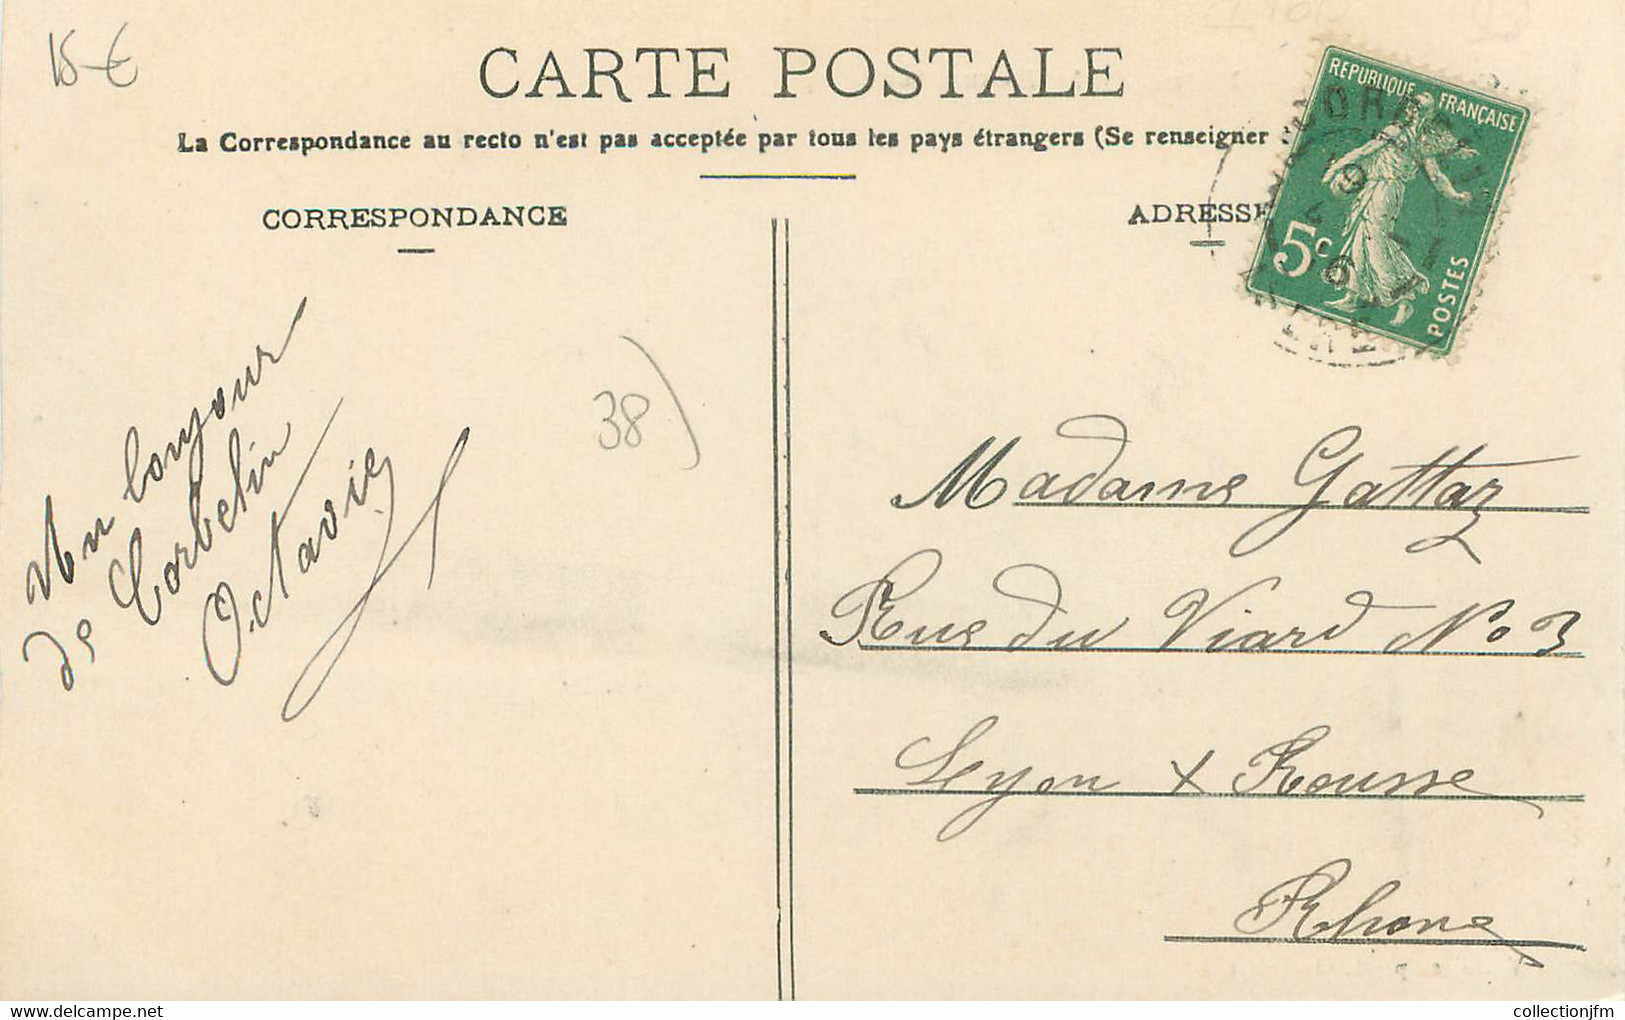 15 €
CARTE POSTALE
La Correspondance au recto n'est pas acceptée par tous les pays étrangers (Se renseigner
CORRESPONDANCE
ADRESSE
REPUBLIQUE FRANÇAISE
5c
POSTES
Un bonjour
de Corbelin
Octavie
38)
Madame Gattaz
Rue du Viard No 3
Lyon X Rousse
Rhone
collectionjfm